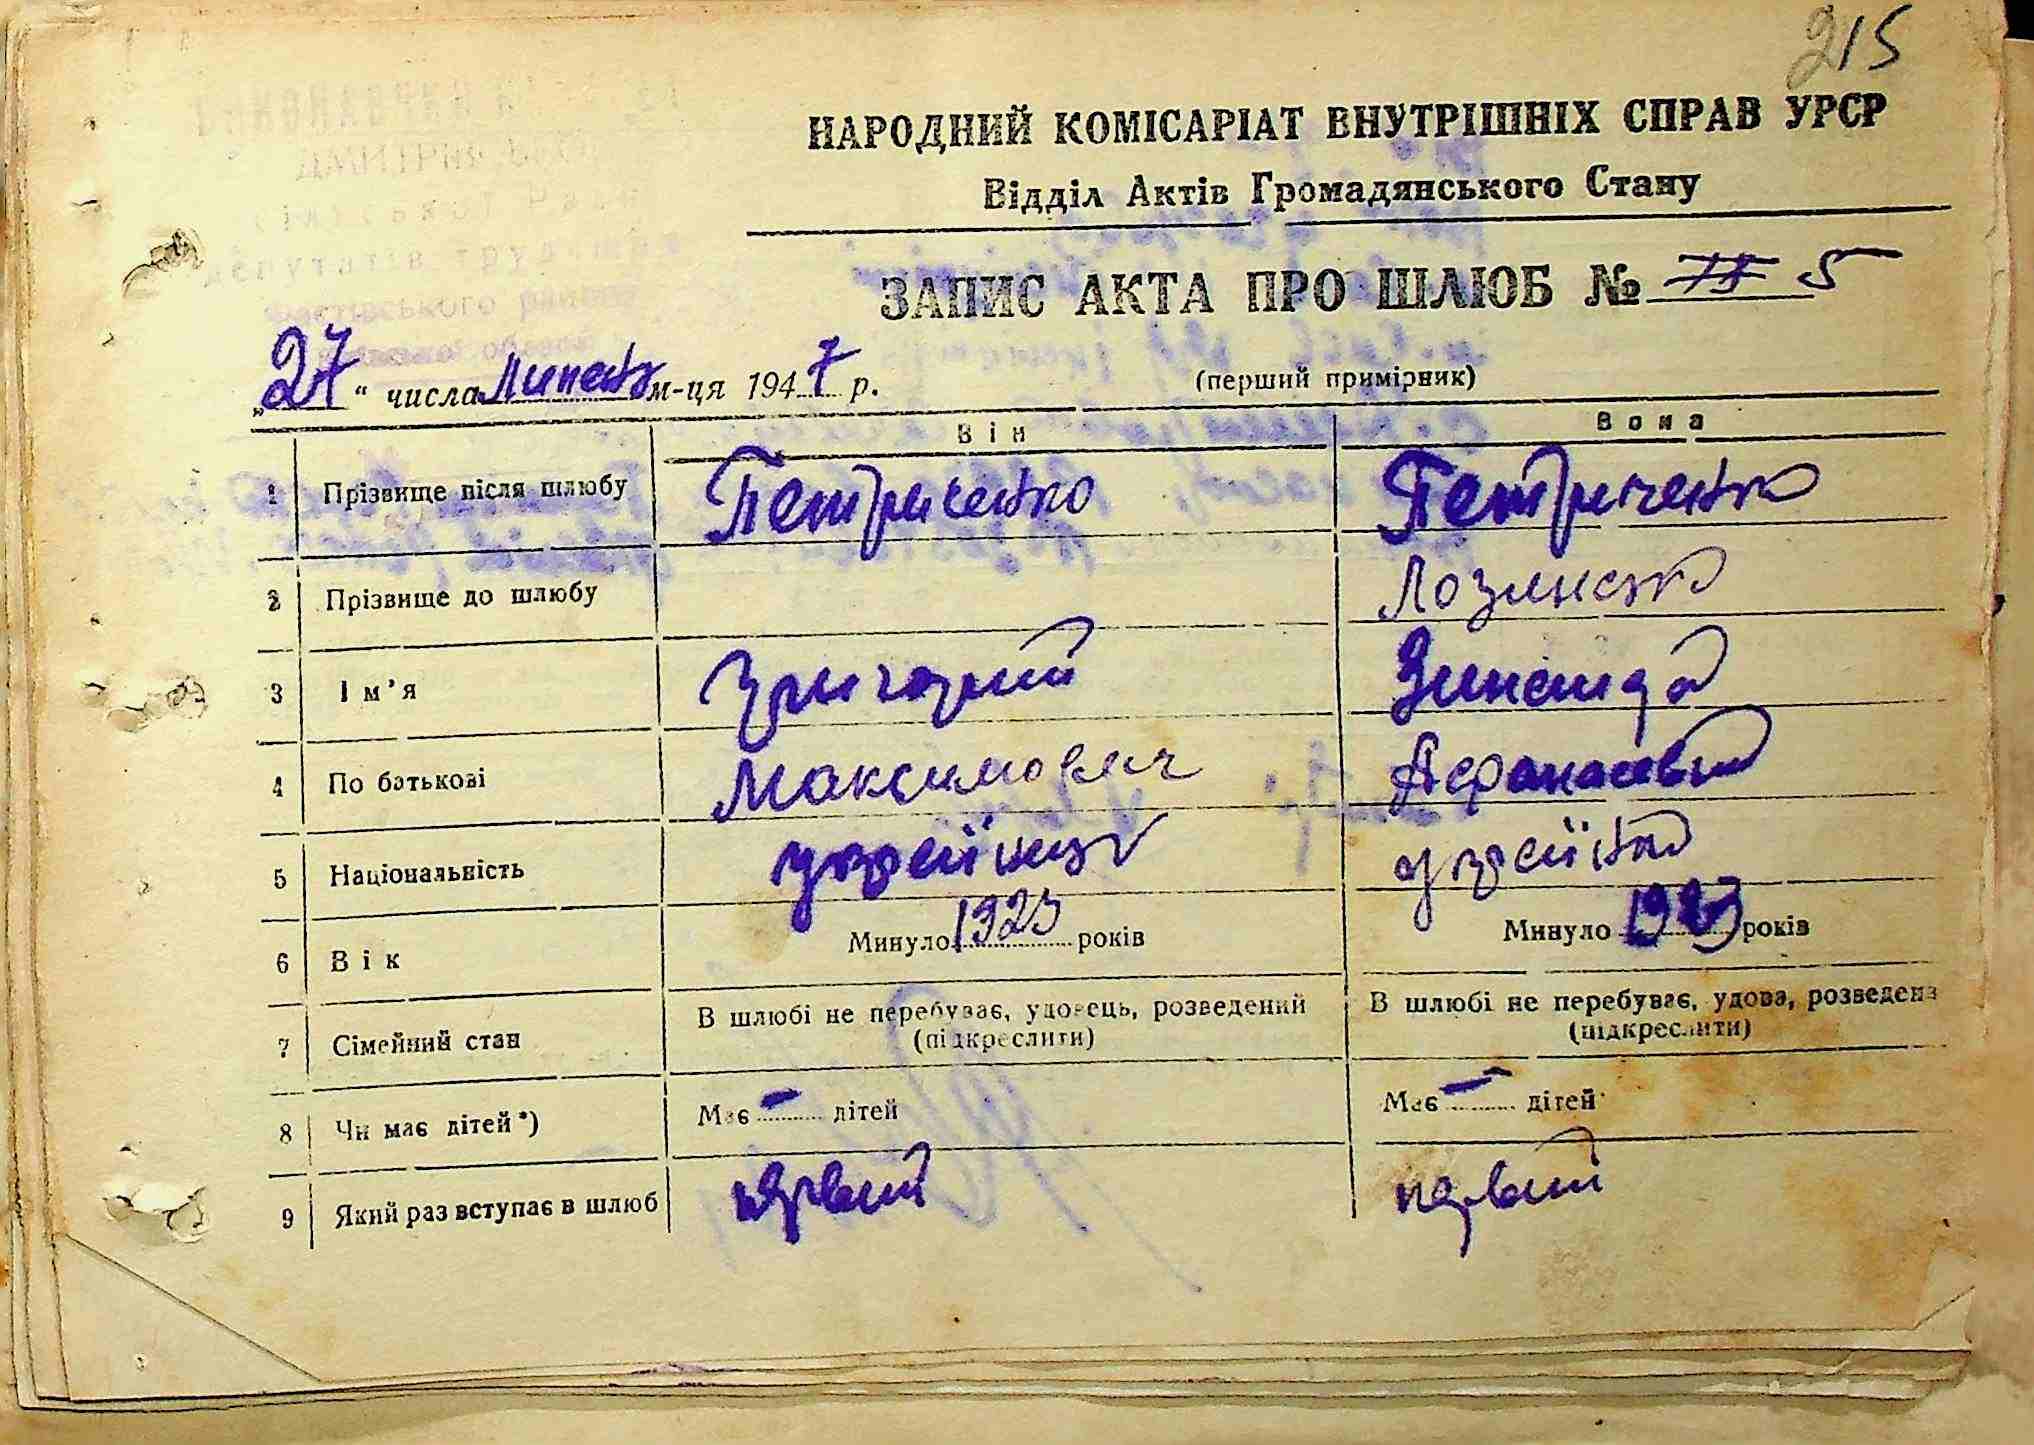 215
НАРОДНИЙ КОМІСАРІАТ ВНУТРІШНІХ СПРАВ УРСР
Відділ Актів Громадянського Стану
ЗАПИС АКТА ПРО ШЛЮБ № 5
„27“ числа Липень м-ця 1947 р.
(перший примірник)
Він Вона
1 Прізвище після шлюбу Петриченко Петриченко
2 Прізвище до шлюбу Лозленко
3 Ім’я Григорий Зинаида
4 По батькові Максимович Афанасевна
5 Національність українець українка
6 Вік Минуло 1923 років Минуло 1923 років
7 Сімейний стан В шлюбі не перебуває, удовець, розведений В шлюбі не перебуває, удова, розведена
(підкреслити) (підкреслити)
8 Чи має дітей*) Має — дітей Має — дітей
9 Який раз вступає в шлюб первий первий